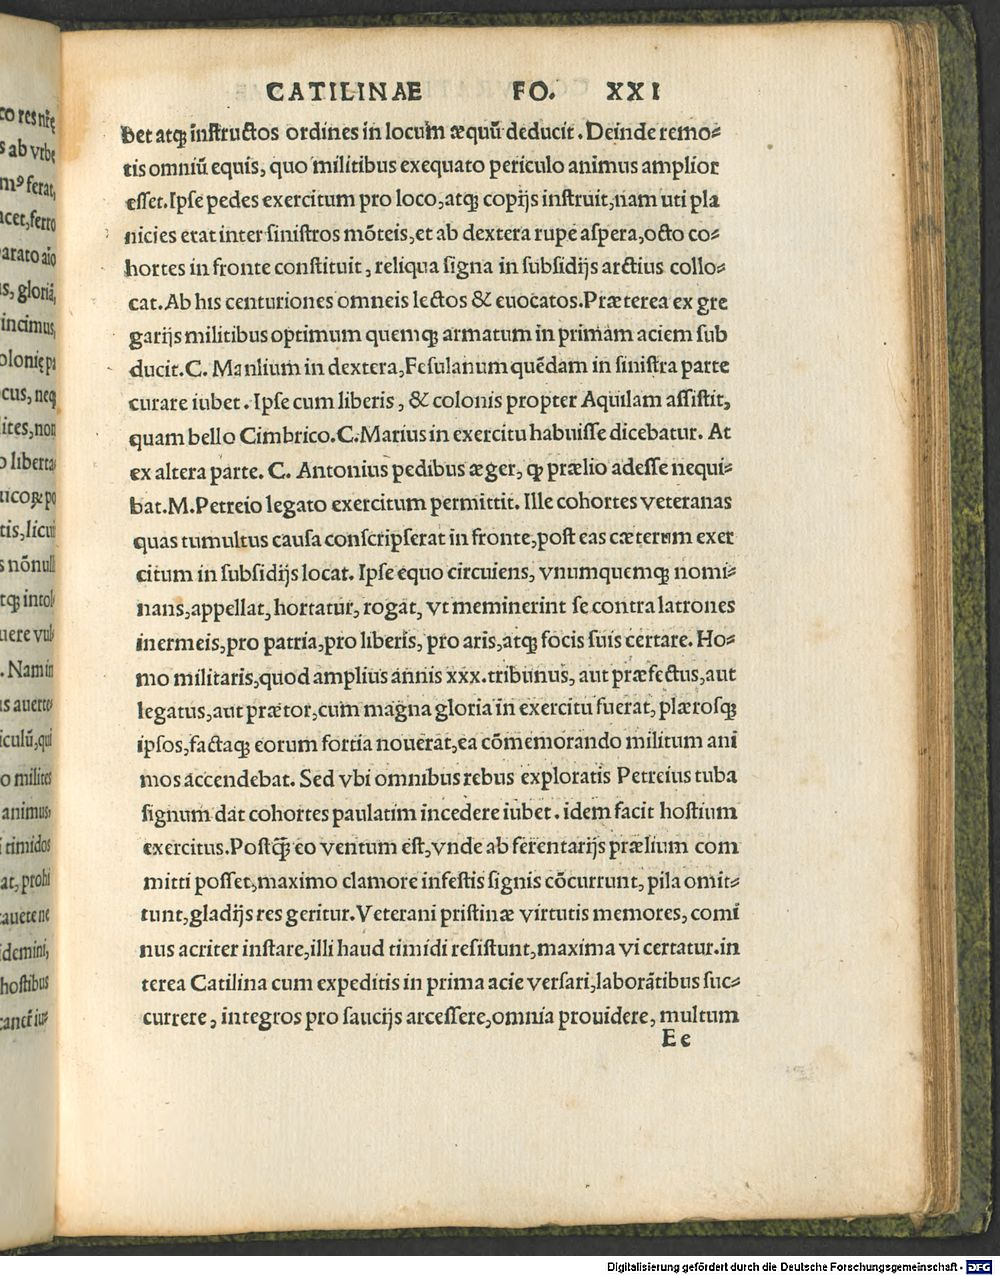 CATILINAE FO. XXI
bet atqꝫ instructos ordines in locum æquũ deducit. Deinde remo⸗
tis omniũ equis, quo militibus exequato periculo animus amplior
esset. Ipse pedes exercitum pro loco, atqꝫ copijs instruit, nam uti pla
nicies erat inter sinistros mõteis, et ab dextera rupe aspera, octo co⸗
hortes in fronte constituit, reliqua signa in subsidijs arctius collo⸗
cat. Ab his centuriones omneis lectos & euocatos. Præterea ex gre
garijs militibus optimum quemqꝫ armatum in primam aciem sub
ducit. C. Manlium in dextera, Fesulanum quẽdam in sinistra parte
curare iubet. Ipse cum liberis, & colonis propter Aquilam assistit,
quam bello Cimbrico. C. Marius in exercitu habuisse dicebatur. At
ex altera parte. C. Antonius pedibus æger, ꝙ prælio adesse nequi⸗
bat. M. Petreio legato exercitum permittit. Ille cohortes veteranas
quas tumultus causa conscripserat in fronte, post eas cæterum exer
citum in subsidijs locat. Ipse equo circuiens, vnumquemqꝫ nomi⸗
nans, appellat, hortatur, rogat, vt meminerint se contra latrones
inermeis, pro patria, pro liberis, pro aris, atqꝫ focis suis certare. Ho⸗
mo militaris, quod amplius annis xxx. tribunus, aut præfectus, aut
legatus, aut prætor, cum magna gloria in exercitu fuerat, plærosqꝫ
ipsos, factaqꝫ eorum fortia nouerat, ea cõmemorando militum ani
mos accendebat. Sed vbi omnibus rebus exploratis Petreius tuba
signum dat cohortes paulatim incedere iubet. idem facit hostium
exercitus. Postq̃ꝫ eo ventum est, vnde ab ferentarijs prælium com
mitti posset, maximo clamore infestis signis cõcurrunt, pila omit⸗
tunt, gladijs res geritur. Veterani pristinæ virtutis memores, comi
nus acriter instare, illi haud timidi resistunt, maxima vi certatur. in
terea Catilina cum expeditis in prima acie versari, laborãtibus suc⸗
currere, integros pro saucijs arcessere, omnia prouidere, multum
Ee
Digitalisierung gefördert durch die Deutsche Forschungsgemeinschaft - DFG